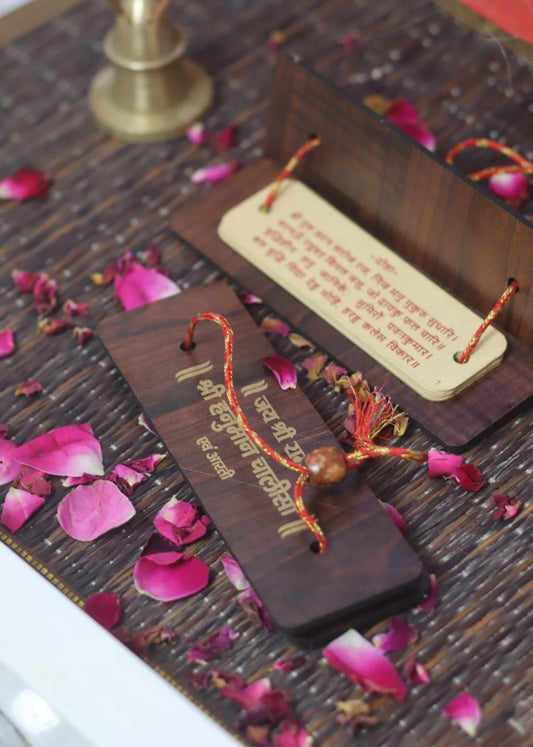 -: दोहा :-
श्री गुरु चरन सरोज रज, निज मनु मुकुरु सुधारि।
बरनऊँ रघुबर बिमल जसु, जो दायकु फल चारि॥
बुद्धिहीन तनु जानिके, सुमिरौं पवनकुमार।
बल बुद्धि विद्या देहु मोहिं, हरहु कलेस विकार॥
1
॥ जय श्री
॥ श्री हनुमान चालीसा ॥
एवं आरती